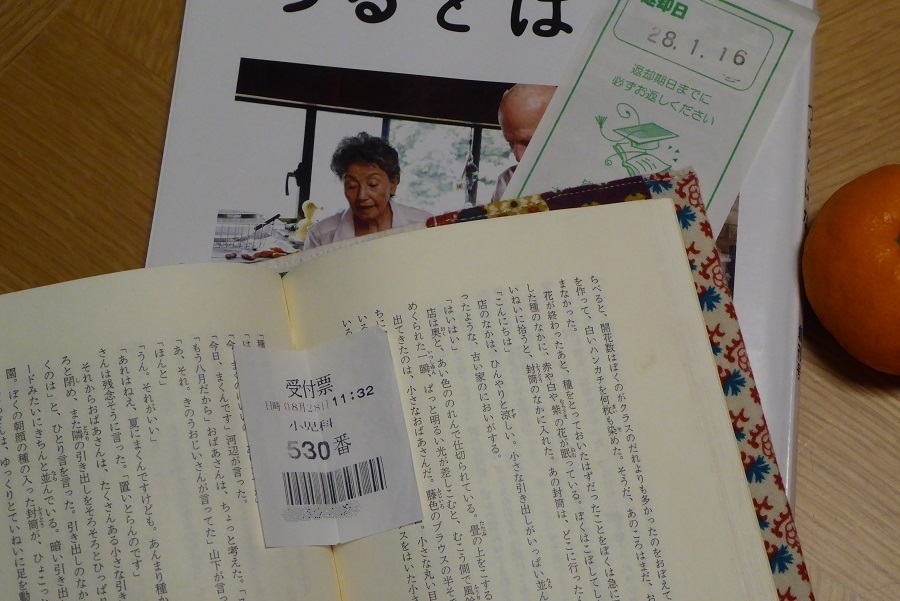 るとは
返却日
28.1.16
返却期日までに
必ずお返しください
らべると、開花数はぼくのがクラスのだれよりも多かったのをおぼえて
を作って、白いハンカチを何枚も染めた。そうだ、あのころはまだ、お
まなかった。
花が終わったあと、種をとっておいたはずだったことをぼくは急に
した種のなかに、赤や白や紫の花が眠っている。ぼくはこぼしてし
いねいに拾うと、封筒のなかに入れた。あの封筒は、どこに行ったん
「こんにちは」
店のなかは、ひんやりと涼しい。小さな引き出しがいっぱい並ん
ったような、古い家のにおいがする。
「はいはい」
店は奥と、あい色ののれんで仕切られている。畳の上を二する
めくられた一瞬、ぱっと明るい光が差しこむと、むこう側で風鈴
出てきたのは、小さなおばあさんだ。藤色のブラウスの半そで
受付票
日時 08月28日 11:32
小児科
530番
「今日、まくんです」河辺が言った。
「もう八月だから」おばあさんは、ちょっと考えた。「
「あ、それ。きのうおじいさんが言ってた」山下が言
「ほんと」
「うん。それがいい」
「あれはねえ、夏にまくんですけども。あんまり種か
さんは残念そうに言った。「置いとらんのです」
それからおばあさんは、たくさんある小さな引き
ろと閉め、また隣の引き出しをそろそろとひっぱり
くのは」と、ひとり言を言った。引き出しのなか
ードみたいにきちんと並んでいる。暗い引き出
園。ぼくの朝顔の種の入った封筒が、ひょこっ
は、ゆっくりとていねいに足を動